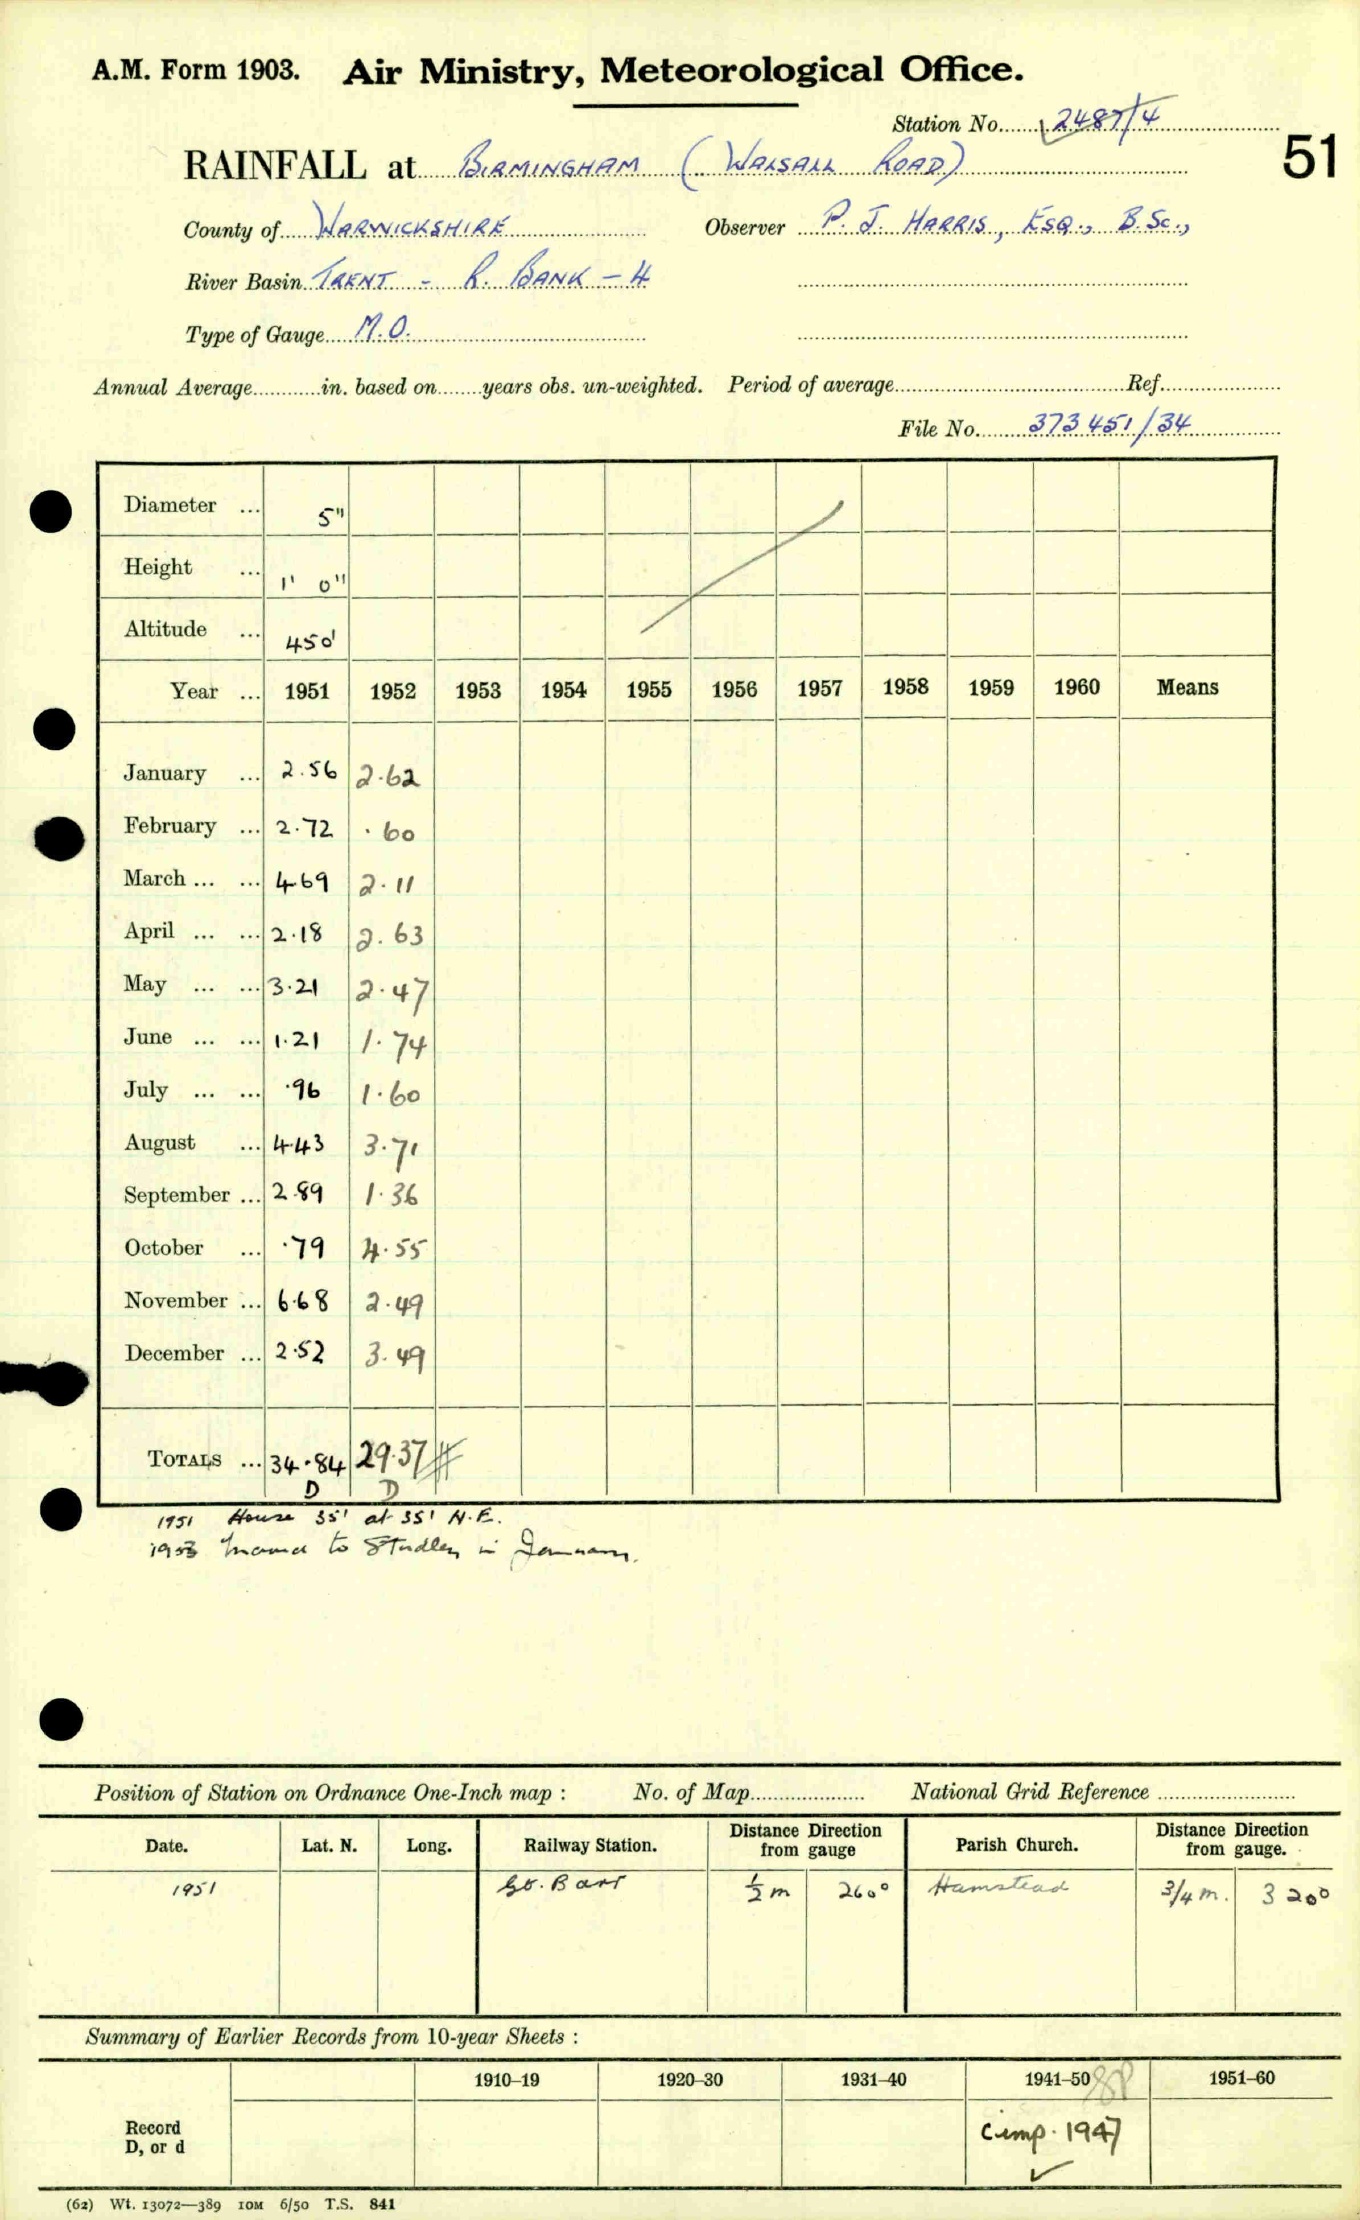 A.M. Form 1903. Air Ministry, Meteorological Office.
Station No. 2487/4
RAINFALL at BIRMINGHAM (WALSALL ROAD)
51
County of WARWICKSHIRE Observer P. J. HARRIS, ESQ., B.Sc.,
River Basin TRENT - R. BANK - 4
Type of Gauge M.O.
Annual Average in. based on years obs. un-weighted. Period of average Ref.
File No. 373451/34
Diameter ... 5"
Height ... 1' 0"
Altitude ... 450'
Year ... 1951 1952 1953 1954 1955 1956 1957 1958 1959 1960 Means
January ... 2.56 2.62
February ... 2.72 .60
March ... ... 4.69 2.11
April ... ... 2.18 2.63
May ... ... 3.21 2.47
June ... ... 1.21 1.74
July ... ... .96 1.60
August ... 4.43 3.71
September ... 2.89 1.36
October ... .79 4.55
November ... 6.68 2.49
December ... 2.52 3.49
TOTALS ... 34.84 29.37
D D
1951 House 35' at 35' N.E.
1953 moved to Studley in January.
Position of Station on Ordnance One-Inch map : No. of Map National Grid Reference
Date. Lat. N. Long. Railway Station. Distance from gauge Direction Parish Church. Distance from gauge. Direction
1951 Gt. Barr 1/2 m 260° Hamstead 3/4 m. 320°
Summary of Earlier Records from 10-year Sheets :
1910–19 1920–30 1931–40 1941–50 1951–60
Record
D, or d
Comp. 1947
(62) Wt. 13072—389 10M 6/50 T.S. 841